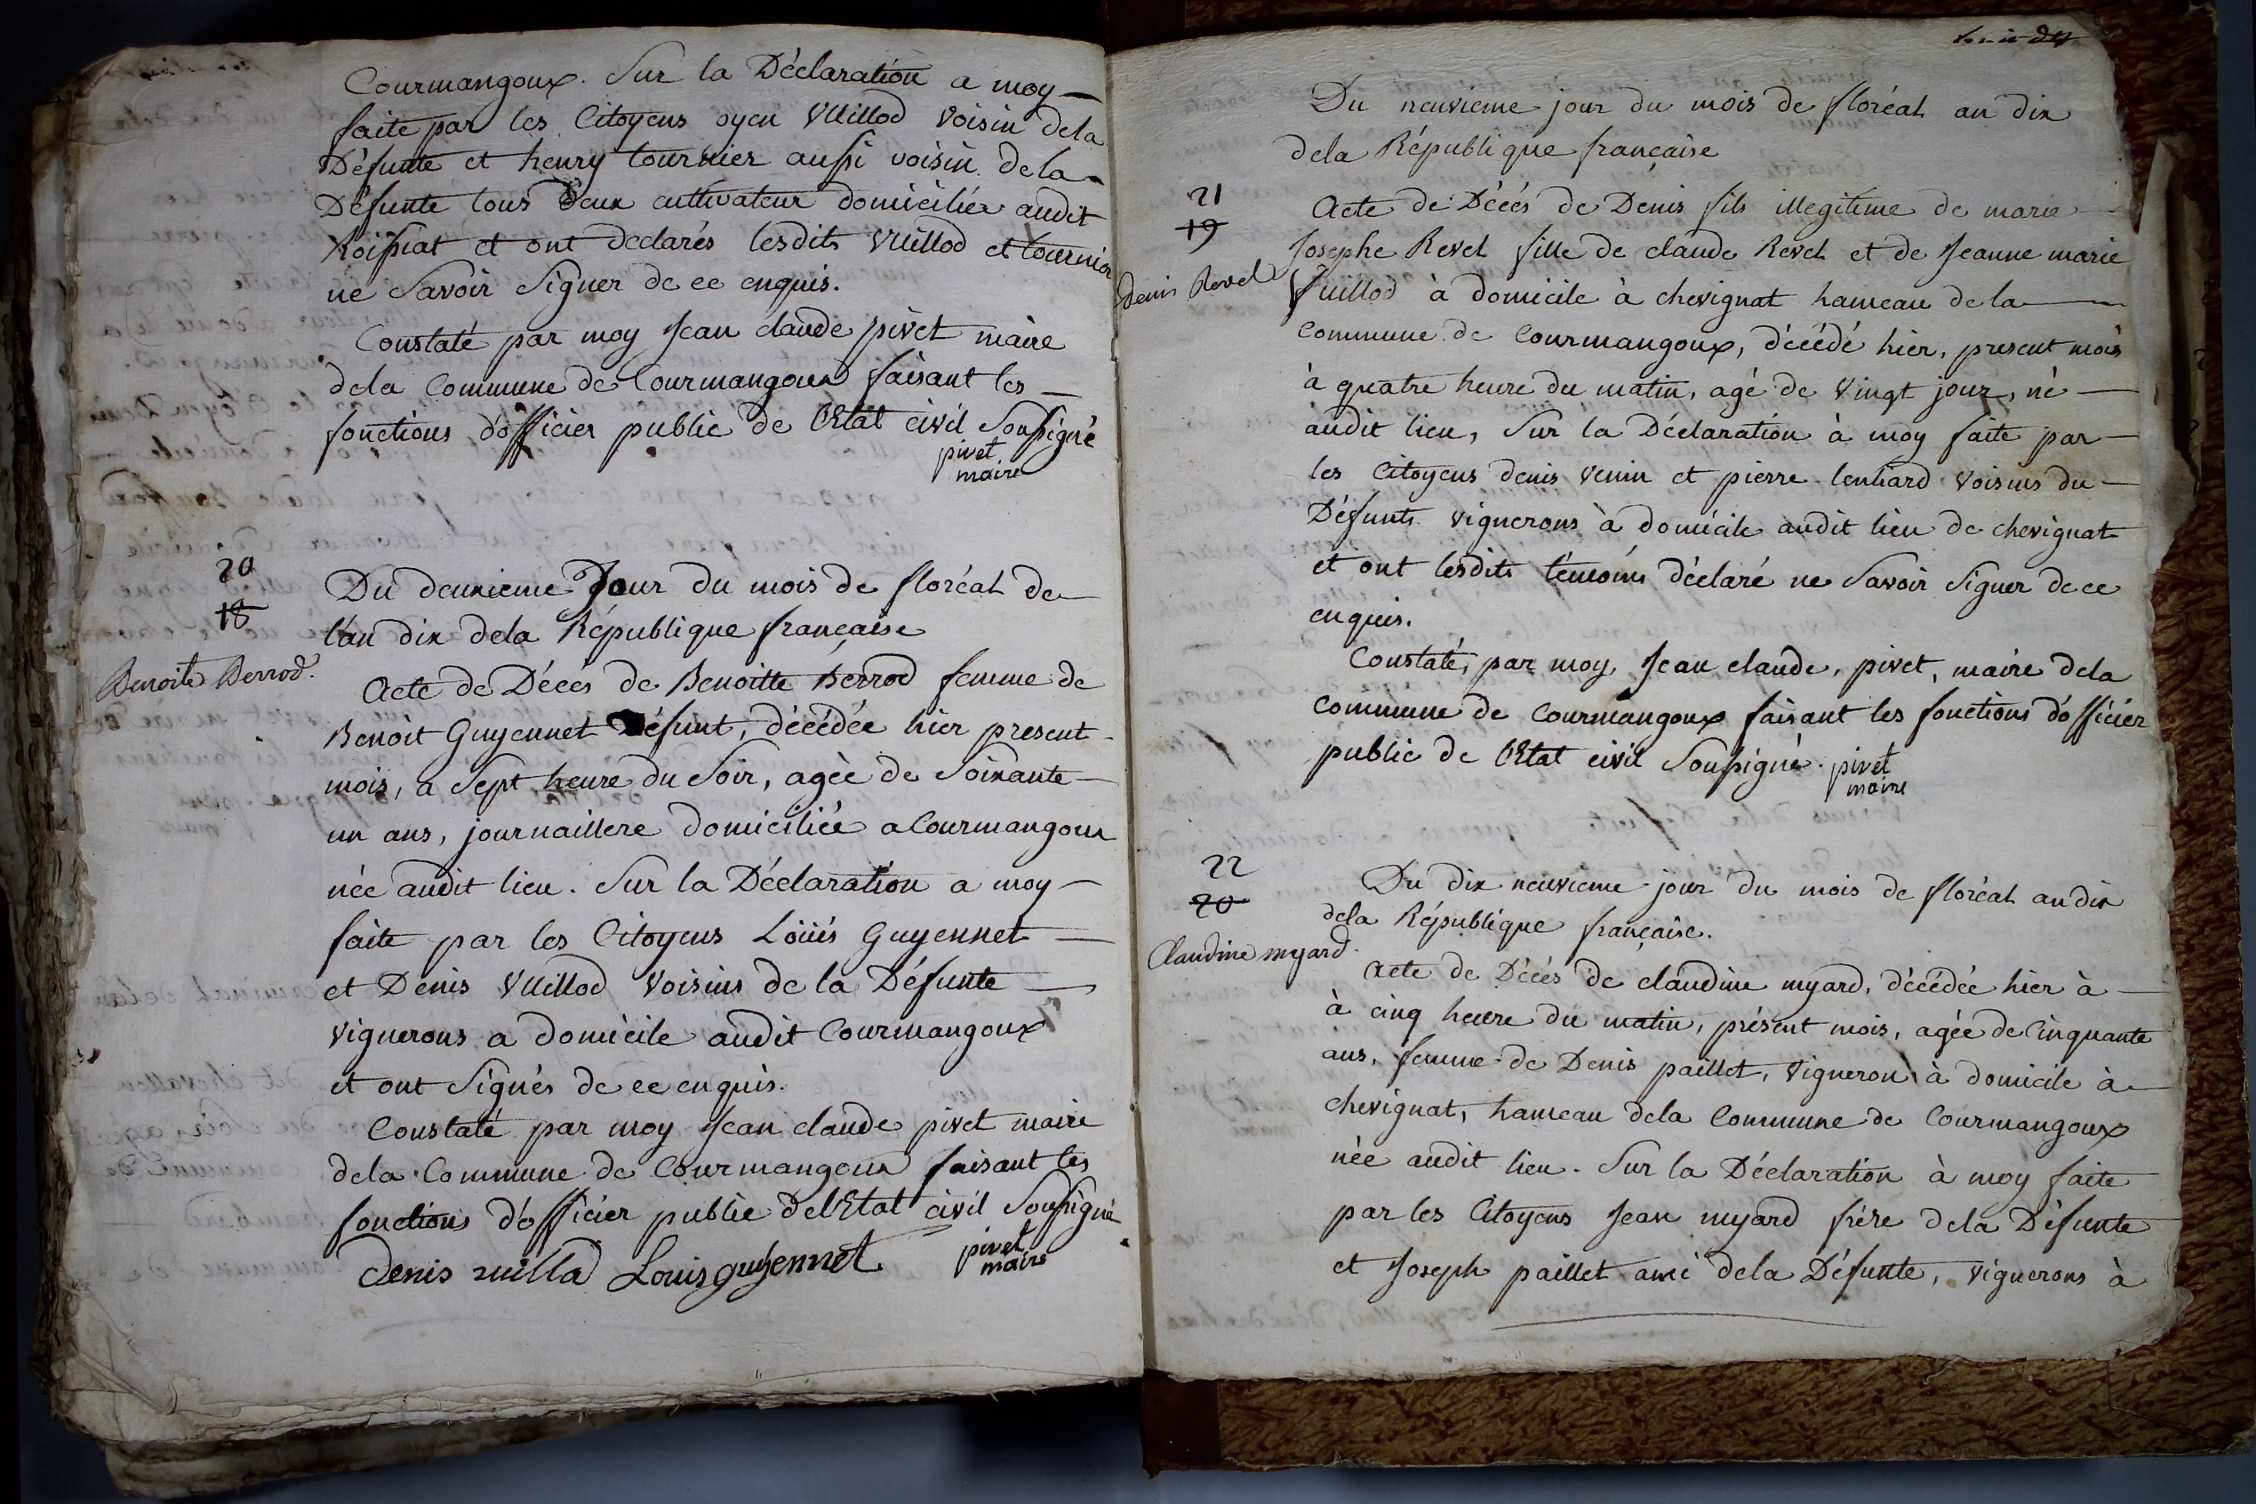 Courmangoux. Sur la Déclaration a moy
faite par les Citoyens oyen Vuillod voisin dela
Défunte et henry tournier aussi voisin dela
Défunte tous deux cultivateur domiciliés audit
Roissiat et ont declarés lesdits Vuillod et tournier
ne Savoir Signer de ce enquis.
Constaté par moy Jean claude pivet maire
dela Commune de Courmangoux faisant les
fonctions d'officier public de l'Etat civil Soussigné
pivet
maire
20
18
Benoite Berrod.
Du deuxieme Jour du mois de floréal de
l'an dix dela République française
Acte de Décés de Benoitte Berrod femme de
Benoit Guyennet Défunt, décédée hier present
mois, a Sept heure du Soir, agèe de Soixante
un ans, journaillere domiciliée a Courmangoux
née audit lieu. Sur la Déclaration a moy
faite par les Citoyens Loüis Guyennet
et Denis Vuillod Voisins de la Défunte
Vignerons a domicile audit Courmangoux
et ont Signés de ce enquis.
Constaté par moy Jean claude pivet maire
dela Commune de Courmangoux faisant les
fonctions d'officier public del'Etat civil Soussigné
denis vuillod Louis guyennet
pivet
maire
Du neuvieme jour du mois de floréal an dix
dela République française
21
19
denis Revel
Acte de Décés de Denis fils illegitime de marie
Josephe Revel fille de claude Revel et de Jeanne marie
Vuillod à domicile à chevignat hameau dela
Commune de Courmangoux, décédé hier, present mois
à quatre heure du matin, agé de Vingt jour, né
audit lieu, Sur la Déclaration à moy faite par
les Citoyens denis Venin et pierre Voisins du
Défunt vignerons à domicile audit lieu de chevignat
et ont lesdits témoins déclaré ne Savoir Signer de ce
enquis.
Constaté, par moy, Jean claude, pivet, maire dela
Commune de Courmangoux faisant les fonctions d'officier
public de l'Etat civil Soussigné.
pivet
maire
22
20
Claudine myard.
Du dix neuvieme jour du mois de floréal an dix
dela République française.
Acte de Décés de claudine myard, décédée hier à
à cinq heure du matin, présent mois, agée de Cinquante
ans, femme de Denis paillet, vigneron à domicile à
chevignat, hameau dela Commune de Courmangoux
née audit lieu. Sur la Déclaration à moy faite
par les Citoyens Jean myard frére dela Défunte
et Joseph paillet ami dela Défunte, vignerons à